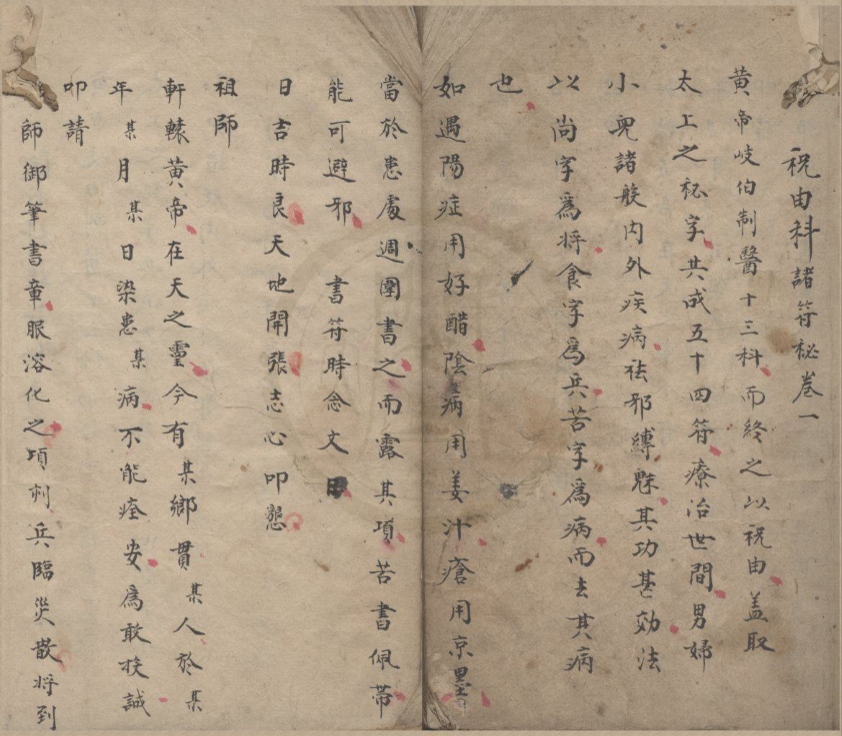 祝由科諸符秘卷一
黃帝岐伯制醫十三科而終之以祝由蓋取
太上之秘字共成五十四符療治世間男婦
小兒諸般內外疾病祛邪縛魅其功甚効法
以尚字為將食字為兵苦字為病而去其病
也
如遇陽症用好醋陰病用姜汁瘡用京墨
當於患處週圍書之而露其項苦書佩帶
能可避邪 書符時念文
日吉時良天地開張志心叩懇
祖師
軒轅黃帝在天之靈今有某鄉貫某人於某
年某月某日染患某病不能痊安為敢投誠
叩請
師御筆書章服溶化之項刺兵臨災散將到